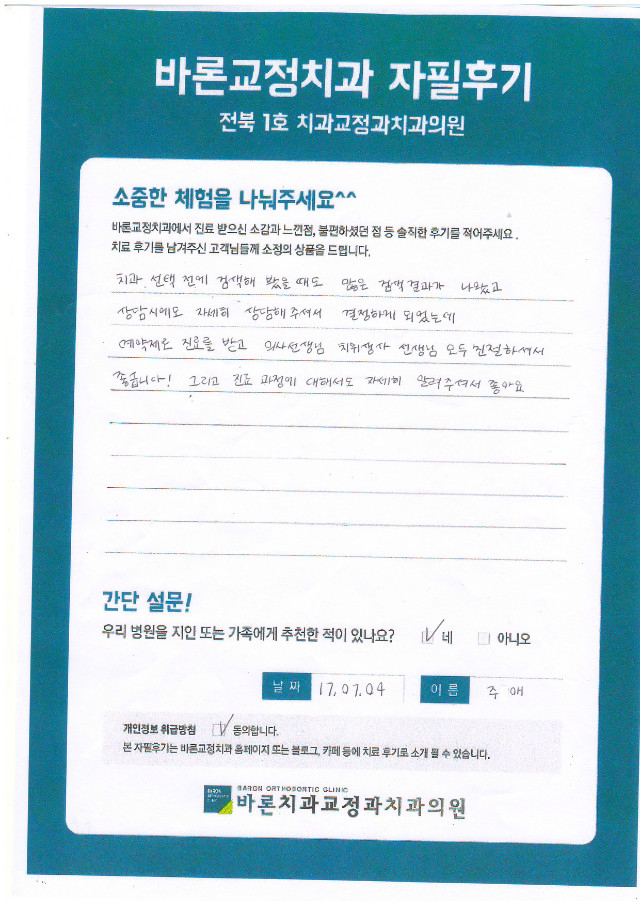 바론교정치과 자필후기
전북 1호 치과교정과치과의원
소중한 체험을 나눠주세요^^
바론교정치과에서 진료 받으신 소감과 느낀점, 불편하셨던 점 등 솔직한 후기를 적어주세요.
치료 후기를 남겨주신 고객님들께 소정의 상품을 드립니다.
치과 선택 전에 검색해 봤을 때도 많은 검색결과가 나왔고
상담시에도 자세히 상담해주셔서 결정하게 되었는데
예약제로 진료를 받고 의사선생님 치위생사 선생님 모두 친절하셔서
좋습니다! 그리고 진료 과정에 대해서도 자세히 알려주셔서 좋아요
간단 설문!
우리 병원을 지인 또는 가족에게 추천한 적이 있나요? 네 아니오
날짜 17.07.04 이름 주애
개인정보 취급방침 동의합니다.
본 자필후기는 바론교정치과 홈페이지 또는 블로그, 카페 등에 치료 후기로 소개 될 수 있습니다.
BARON ORTHODONTIC CLINIC
바론치과교정과치과의원